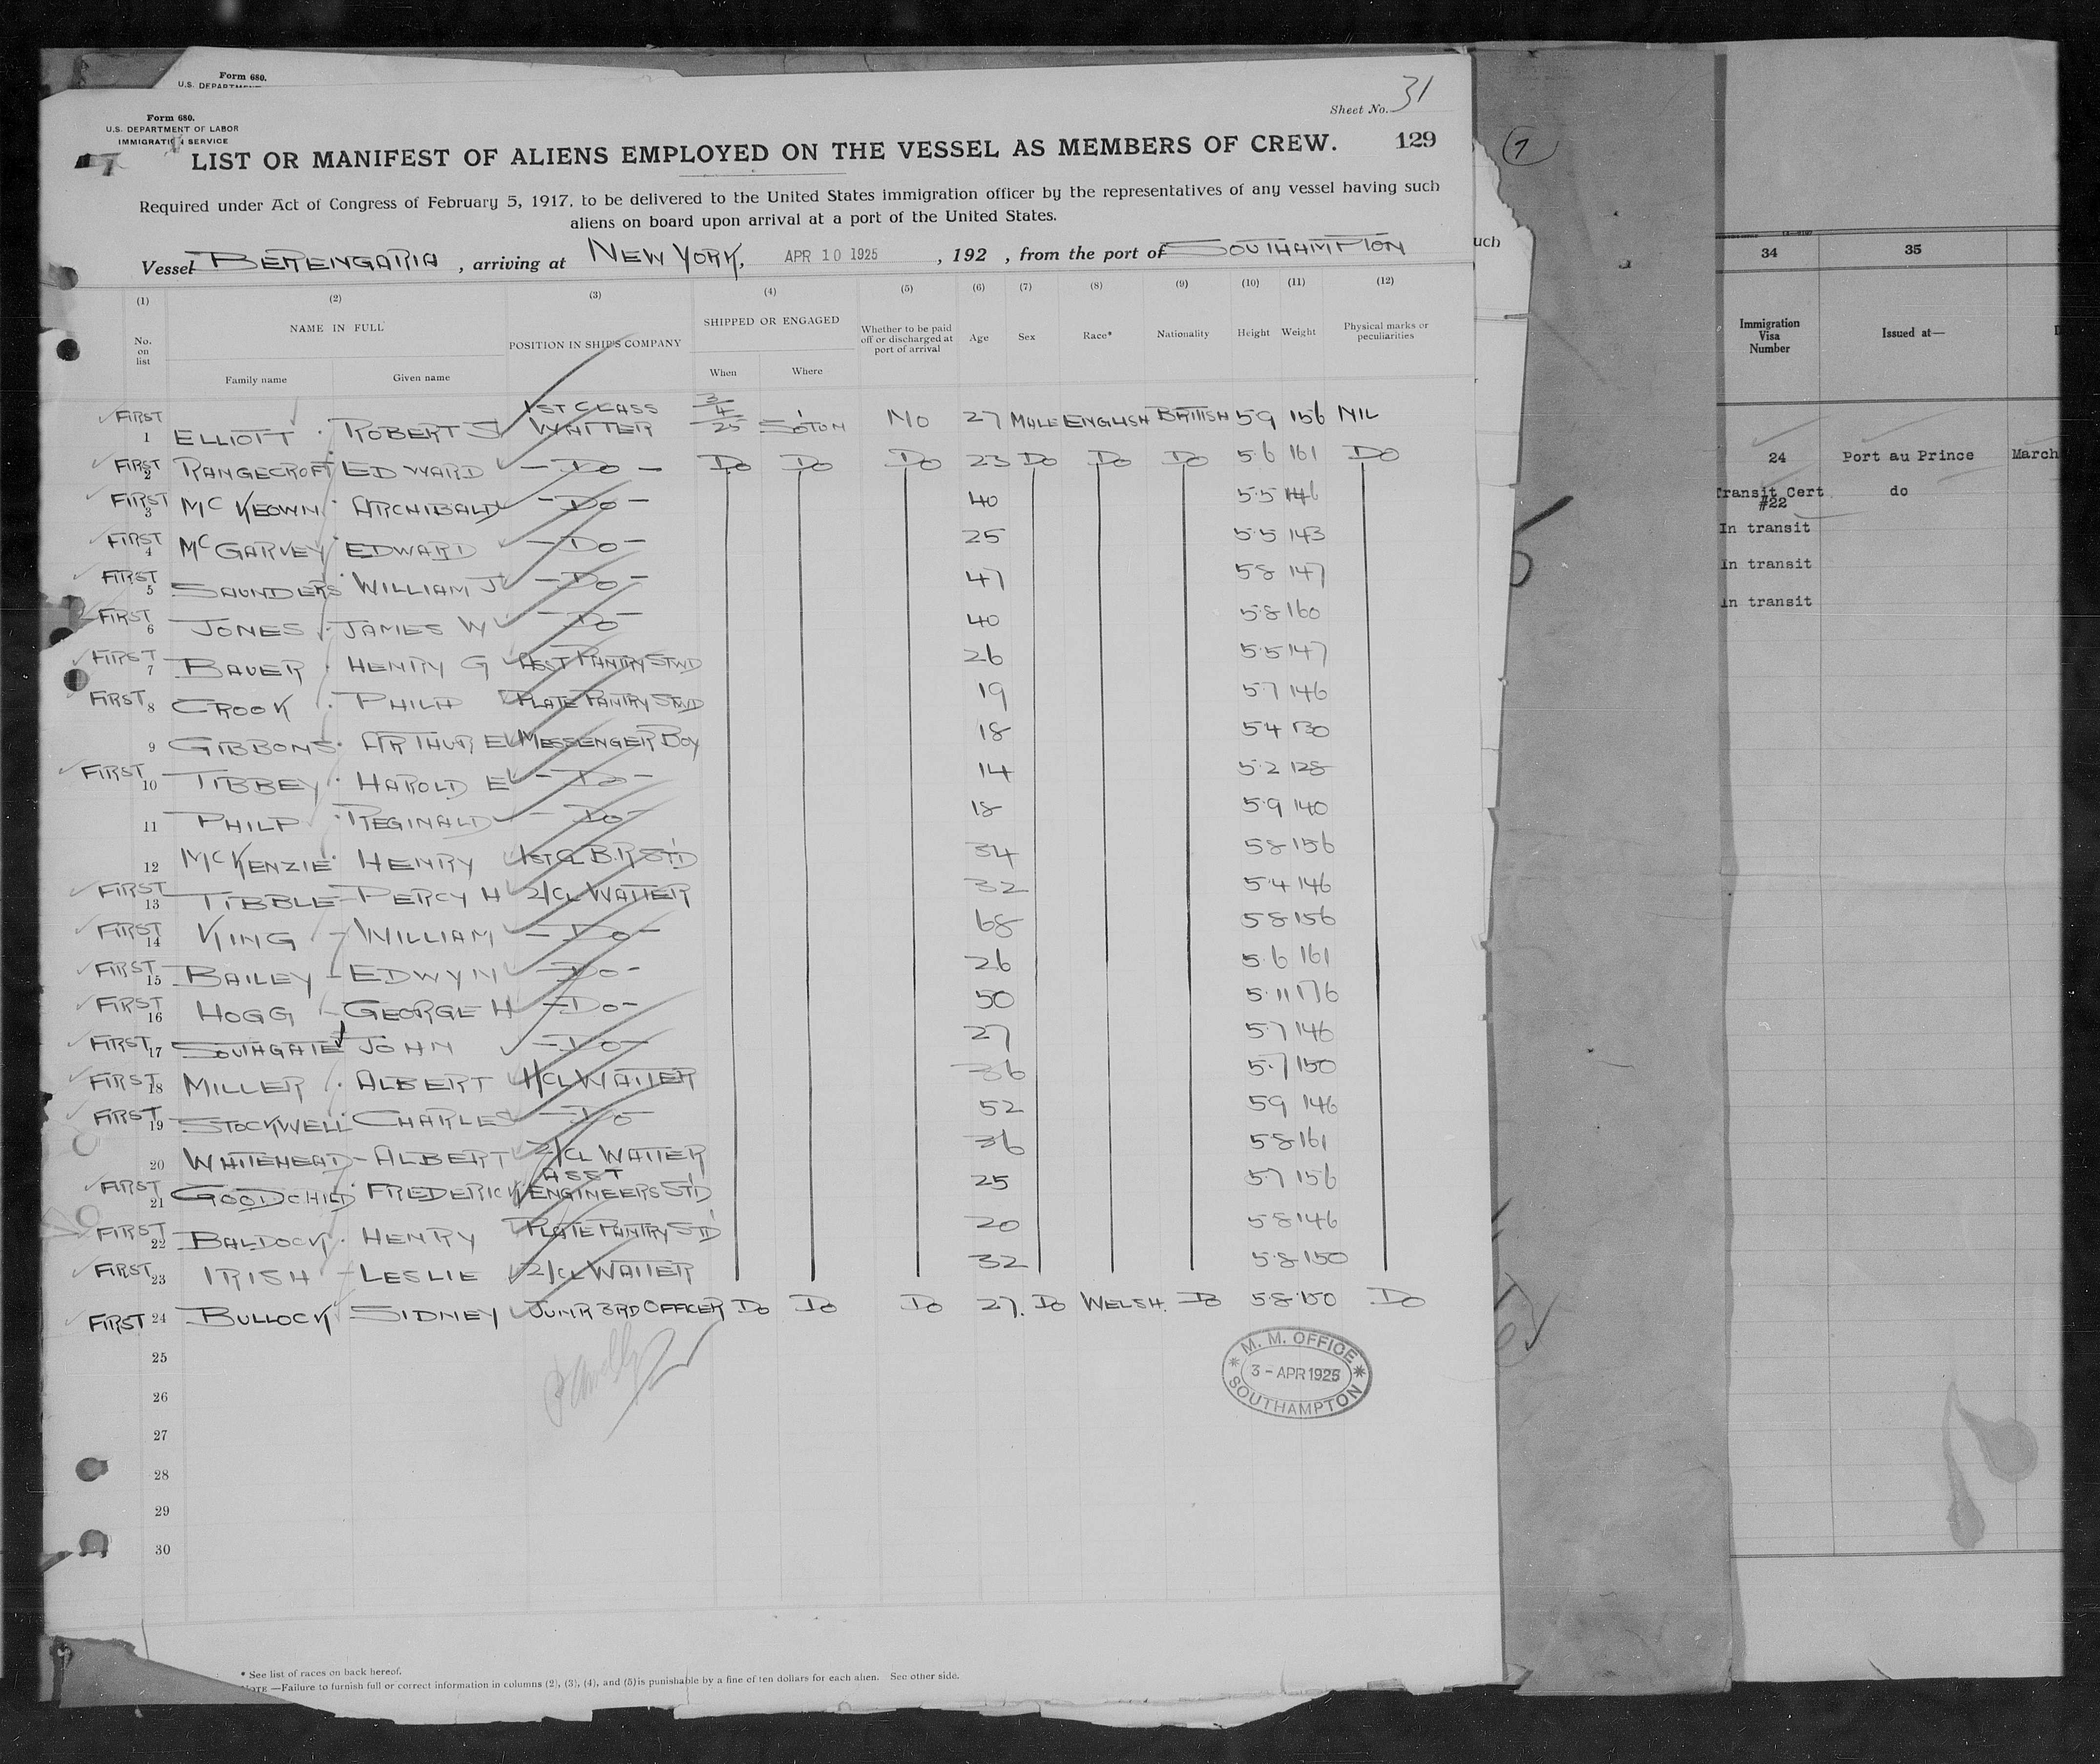 Form 680.
U.S. DEPARTMENT
Form 680.
U.S. DEPARTMENT OF LABOR
IMMIGRATION SERVICE
Sheet No. 31
129
LIST OR MANIFEST OF ALIENS EMPLOYED ON THE VESSEL AS MEMBERS OF CREW.
Required under Act of Congress of February 5, 1917, to be delivered to the United States immigration officer by the representatives of any vessel having such
aliens on board upon arrival at a port of the United States.
Vessel BERENGARIA, arriving at NEW YORK, APR 10 1925, 192 , from the port of SOUTHAMPTON
(1) (2) (3) (4) (5) (6) (7) (8) (9) (10) (11) (12)
No. on list NAME IN FULL POSITION IN SHIP'S COMPANY SHIPPED OR ENGAGED Whether to be paid off or discharged at port of arrival Age Sex Race* Nationality Height Weight Physical marks or peculiarities
Family name Given name When Where
FIRST 1 ELLIOTT ROBERT S 1ST CLASS WAITER 3/4/25 SOTON NO 27 MALE ENGLISH BRITISH 5 9 156 NIL
FIRST 2 RANGECROFT EDWARD - DO - DO DO DO 23 DO DO DO 5 6 161 DO
FIRST 3 MCKEOWN ARCHIBALD - DO - 40 5.5 146
FIRST 4 MCGARVEY EDWARD - DO - 25 5.5 143
FIRST 5 SAUNDERS WILLIAM J - DO - 47 5 8 147
FIRST 6 JONES JAMES W - DO - 40 5.8 160
FIRST 7 BAUER HENRY G ASST PANTRY STWD 26 5.5 147
FIRST 8 CROOK PHILIP PLATE PANTRY STWD 19 5.7 146
9 GIBBONS ARTHUR E MESSENGER BOY 18 5 4 130
FIRST 10 TIBBEY HAROLD E - DO - 14 5.2 128
11 PHILP REGINALD - DO - 18 5.9 140
12 MCKENZIE HENRY 1ST CL B.R ST'D 34 5 8 156
FIRST 13 TIBBLE PERCY H 2/CL WAITER 32 5.4 146
FIRST 14 KING - WILLIAM - DO - 68 5 8 156
FIRST 15 BAILEY - EDWYN - DO - 26 5.6 161
FIRST 16 HOGG - GEORGE H - DO - 50 5.11 176
FIRST 17 SOUTHGATE JOHN - DO - 27 5.7 146
FIRST 18 MILLER ALBERT 1/CL WAITER 36 5.7 150
FIRST 19 STOCKWELL CHARLES - DO - 52 5 9 146
20 WHITEHEAD - ALBERT 2/CL WAITER 36 5 8 161
FIRST 21 GOODCHILD FREDERICK ASST ENGINEERS ST'D 25 5.7 156
FIRST 22 BALDOCK HENRY PLATE PANTRY ST'D 20 5 8 146
FIRST 23 IRISH - LESLIE 2/CL WAITER 32 5.8 150
FIRST 24 BULLOCK SIDNEY JUNR 3RD OFFICER DO DO DO 27. DO WELSH. DO 5.8 150 DO
25
26
27
28
29
30
M. M. OFFICE
3 - APR 1925
SOUTHAMPTON
* See list of races on back hereof.
NOTE —Failure to furnish full or correct information in columns (2), (3), (4), and (5) is punishable by a fine of ten dollars for each alien. See other side.
uch
7
34 35
Immigration Visa Number Issued at—
24 Port au Prince March
Transit Cert #22 do
In transit
In transit
In transit